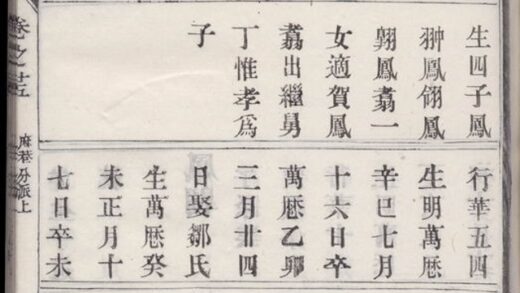 生四子鳳
翀鳳翎鳳
翱鳳翥一
女適賀鳳
翥出繼舅
丁惟孝為
子
行華五四
生明萬曆
辛巳七月
十六日卒
萬曆乙卯
三月廿四
日娶鄒氏
生萬曆癸
未正月十
七日卒未
卷之廿五
麻巷分派上